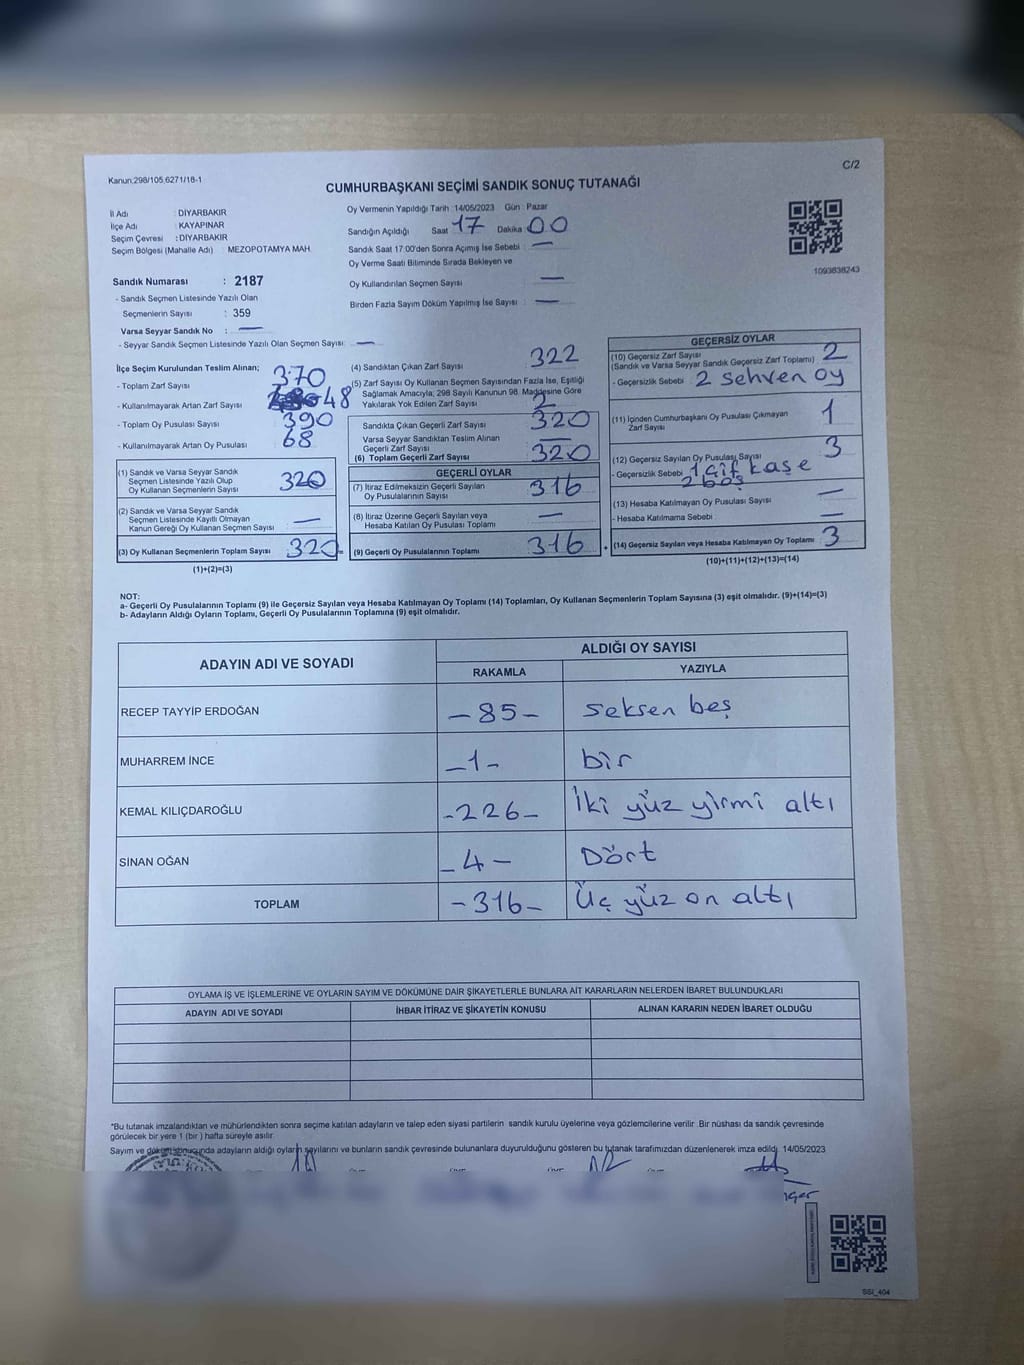 C/2
Kanun:298/105,6271/18-1
CUMHURBAŞKANI SEÇİMİ SANDIK SONUÇ TUTANAĞI
İl Adı : DİYARBAKIR
İlçe Adı : KAYAPINAR
Seçim Çevresi : DİYARBAKIR
Seçim Bölgesi (Mahalle Adı) : MEZOPOTAMYA MAH.
Oy Vermenin Yapıldığı Tarih :14/05/2023 Gün : Pazar
Sandığın Açıldığı Saat 17 Dakika 00
Sandık Saat 17:00'den Sonra Açımış İse Sebebi : —
Oy Verme Saati Bitiminde Sırada Bekleyen ve
Oy Kullandırılan Seçmen Sayısı : —
Birden Fazla Sayım Döküm Yapılmış İse Sayısı : —
1093838243
Sandık Numarası : 2187
- Sandık Seçmen Listesinde Yazılı Olan
Seçmenlerin Sayısı : 359
Varsa Seyyar Sandık No : —
- Seyyar Sandık Seçmen Listesinde Yazılı Olan Seçmen Sayısı: —
İlçe Seçim Kurulundan Teslim Alınan;
- Toplam Zarf Sayısı : 370
- Kullanılmayarak Artan Zarf Sayısı : 48
- Toplam Oy Pusulası Sayısı : 390
- Kullanılmayarak Artan Oy Pusulası : 68
(1) Sandık ve Varsa Seyyar Sandık
Seçmen Listesinde Yazılı Olup
Oy Kullanan Seçmenlerin Sayısı : 320
(2) Sandık ve Varsa Seyyar Sandık
Seçmen Listesinde Kayıtlı Olmayan
Kanun Gereği Oy Kullanan Seçmen Sayısı : —
(3) Oy Kullanan Seçmenlerin Toplam Sayısı : 320
(1)+(2)=(3)
(4) Sandıktan Çıkan Zarf Sayısı : 322
(5) Zarf Sayısı Oy Kullanan Seçmen Sayısından Fazla İse, Eşitliği
Sağlamak Amacıyla; 298 Sayılı Kanunun 98. Maddesine Göre
Yakılarak Yok Edilen Zarf Sayısı : 2
Sandıkta Çıkan Geçerli Zarf Sayısı : 320
Varsa Seyyar Sandıktan Teslim Alınan
Geçerli Zarf Sayısı : —
(6) Toplam Geçerli Zarf Sayısı : 320
GEÇERLİ OYLAR
(7) İtiraz Edilmeksizin Geçerli Sayılan
Oy Pusulalarının Sayısı : 316
(8) İtiraz Üzerine Geçerli Sayılan veya
Hesaba Katılan Oy Pusulası Toplamı : —
(9) Geçerli Oy Pusulalarının Toplamı : 316
GEÇERSİZ OYLAR
(10) Geçersiz Zarf Sayısı
(Sandık ve Varsa Seyyar Sandık Geçersiz Zarf Toplamı) : 2
- Geçersizlik Sebebi : 2 sehven oy
(11) İçinden Cumhurbaşkanı Oy Pusulası Çıkmayan
Zarf Sayısı : 1
(12) Geçersiz Sayılan Oy Pusulası Sayısı : 3
- Geçersizlik Sebebi : 1 çift kaşe
2 boş
(13) Hesaba Katılmayan Oy Pusulası Sayısı : —
- Hesaba Katılmama Sebebi : —
(14) Geçersiz Sayılan veya Hesaba Katılmayan Oy Toplamı : 3
(10)+(11)+(12)+(13)=(14)
NOT:
a- Geçerli Oy Pusulalarının Toplamı (9) ile Geçersiz Sayılan veya Hesaba Katılmayan Oy Toplamı (14) Toplamları, Oy Kullanan Seçmenlerin Toplam Sayısına (3) eşit olmalıdır. (9)+(14)=(3)
b- Adayların Aldığı Oyların Toplamı, Geçerli Oy Pusulalarının Toplamına (9) eşit olmalıdır.
ADAYIN ADI VE SOYADI
ALDIĞI OY SAYISI
RAKAMLA YAZIYLA
RECEP TAYYİP ERDOĞAN –85– seksen beş
MUHARREM İNCE –1– bir
KEMAL KILIÇDAROĞLU –226– İki yüz yirmi altı
SİNAN OĞAN –4– Dört
TOPLAM –316– Üç yüz on altı
OYLAMA İŞ VE İŞLEMLERİNE VE OYLARIN SAYIM VE DÖKÜMÜNE DAİR ŞİKAYETLERLE BUNLARA AİT KARARLARIN NELERDEN İBARET BULUNDUKLARI
ADAYIN ADI VE SOYADI İHBAR İTİRAZ VE ŞİKAYETİN KONUSU ALINAN KARARIN NEDEN İBARET OLDUĞU
*Bu tutanak imzalandıktan ve mühürlendikten sonra seçime katılan adayların ve talep eden siyasi partilerin sandık kurulu üyelerine veya gözlemcilerine verilir. Bir nüshası da sandık çevresinde
görülecek bir yere 1 (bir ) hafta süreyle asılır.
Sayım ve döküm sonucunda adayların aldığı oyların sayılarını ve bunların sandık çevresinde bulunanlara duyurulduğunu gösteren bu tutanak tarafımızdan düzenlenerek imza edildi. 14/05/2023
SSI_404